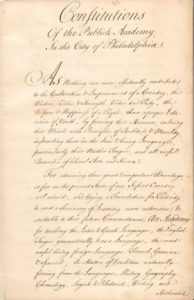 Constitutions
Of the Publick Academy
In the City of Philadelphia
As Nothing can more effectually contribute
to the Cultivation & Improvement of a Country, the
Wisdom, Riches, & Strength, Virtue and Piety, the
Welfare & Happiness of a People, than a proper Edu-
cation of Youth, by forming their Manners, imbuing
their Minds with Principles of Rectitude & Morality,
instructing them in the dead & living Languages,
particularly their Mother Tongue, and all useful
Branches of liberal Arts and Science
For attaining these great & important Advantages,
so far as the present State of our Infant Country
will admit, and laying a Foundation for Posterity
to erect a Seminary of Learning more extensive, &
suitable to their future Circumstances, An Academy
for teaching the Latin & Greek Languages, the English
Tongue grammatically and as a Language, the most
useful living foreign Languages, French, German
& Spanish: As Matters of Erudition naturally
flowing from the Languages, History, Geography,
Chronology, Logick & Rhetorick, Writing,
Arithmetick